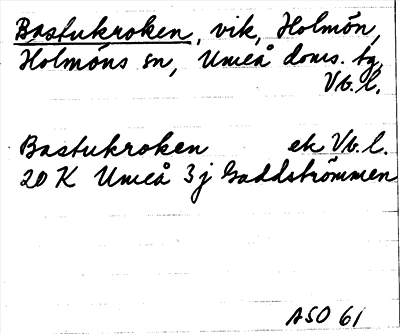 Bastukroken, vik, Holmön,
Holmöns sn, Umeå doms. tg,
Vb. l.
Bastukroken ek Vb. l.
20 K Umeå 3j Gaddströmmen
ASO 61